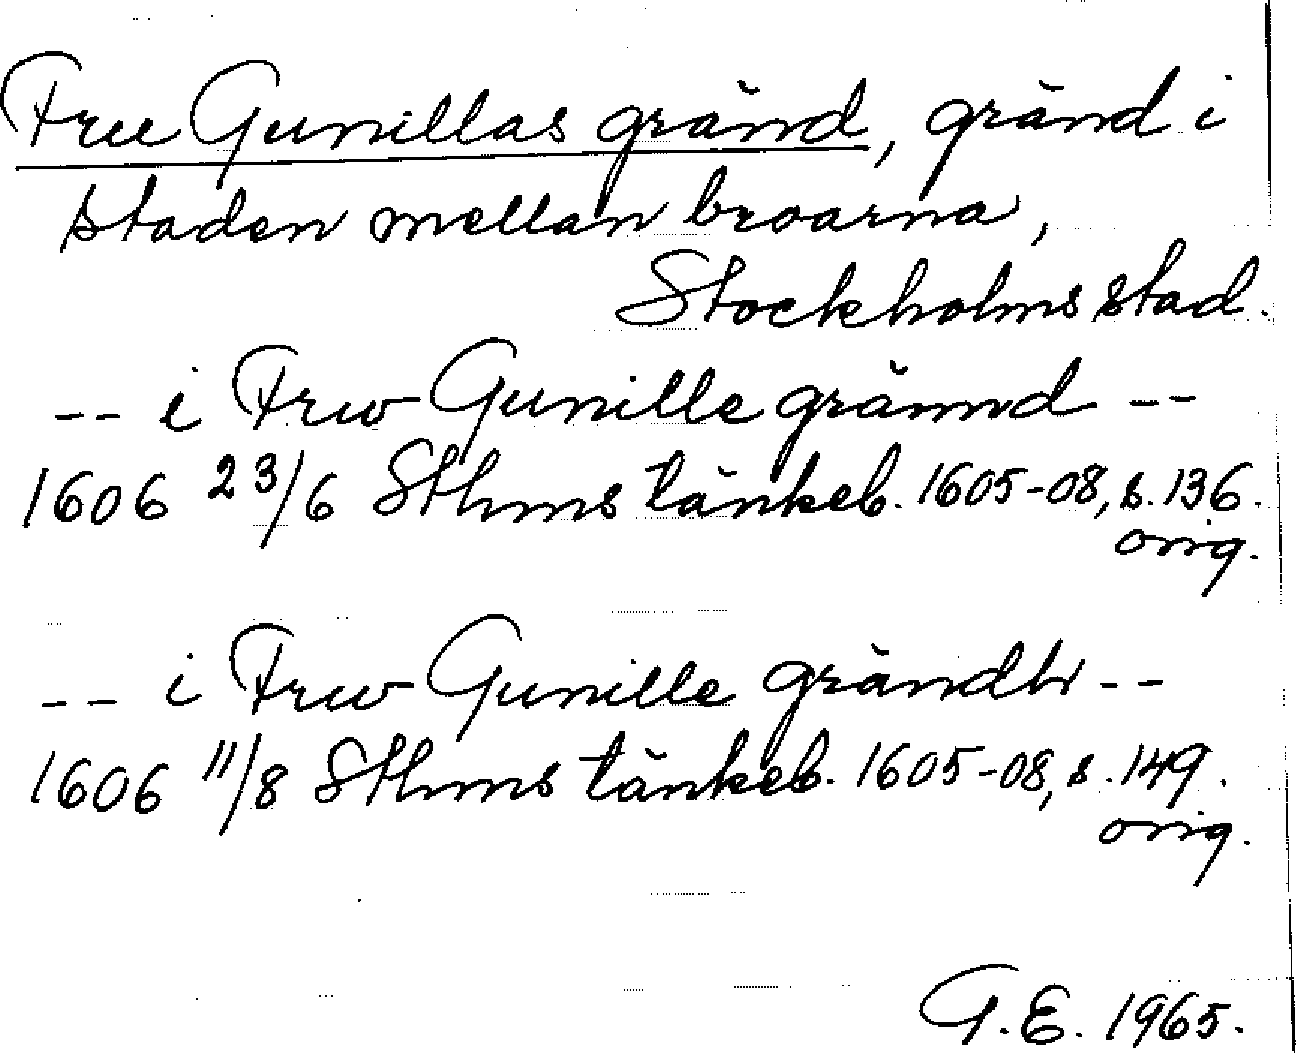 Fru Gunillas gränd, gränd i
staden mellan broarna,
Stockholms stad.
-- i Frw Gunille grännd --
1606 23/6 Sthms tänkeb. 1605-08, s. 136.
orig.
-- i Frw Gunille grändh --
1606 11/8 Sthms tänkeb. 1605-08, s. 149.
orig.
G.E. 1965.